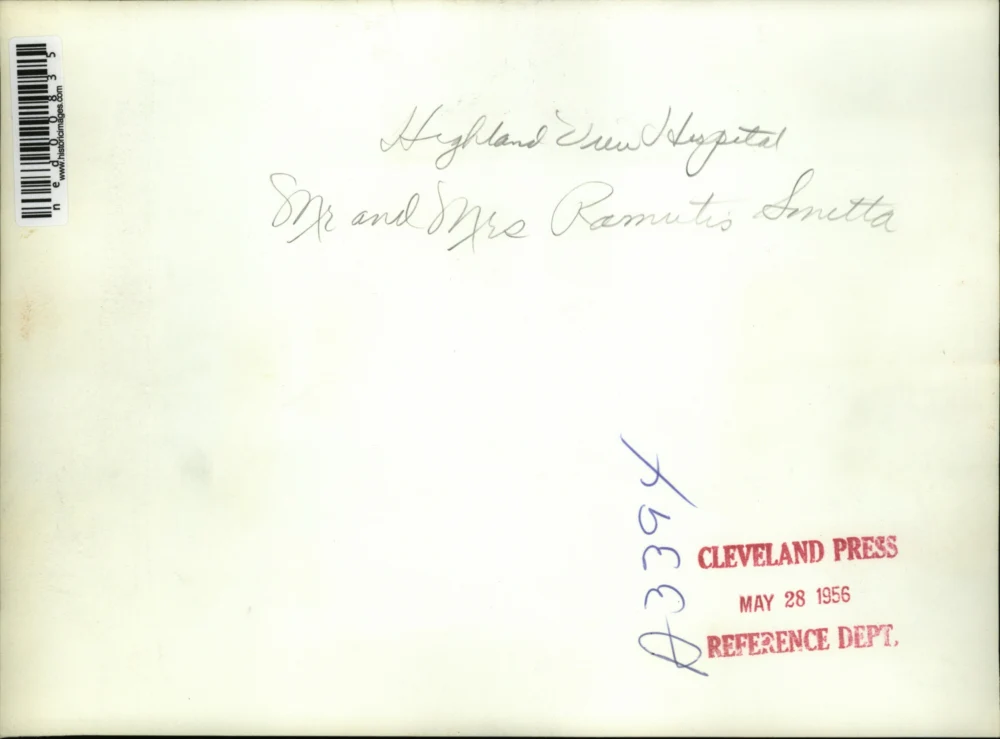 Highland View Hospital
Mr and Mrs Ramutis Smetta
CLEVELAND PRESS
MAY 28 1956
REFERENCE DEPT.
ned00835
www.historicimages.com